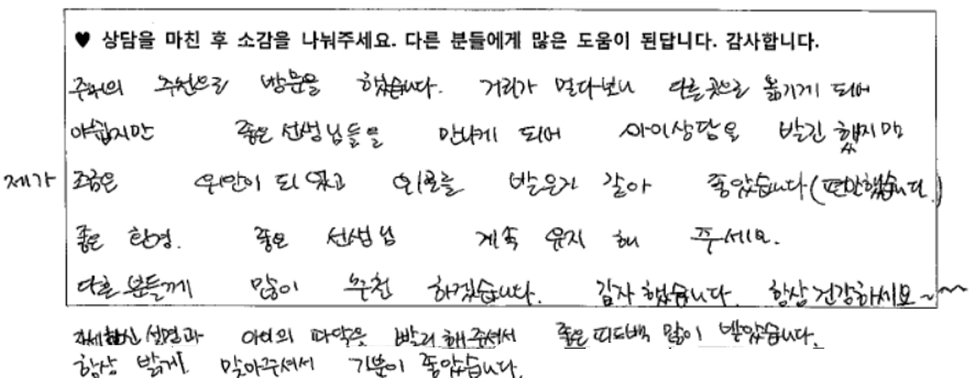 ♥ 상담을 마친 후 소감을 나눠주세요. 다른 분들에게 많은 도움이 된답니다. 감사합니다.
주위의 추천으로 방문을 했습니다. 거리가 멀다보니 다른곳으로 옮기게 되어
아쉽지만 좋은 선생님들을 만나게 되어 아이상담을 받긴 했지만
제가 조금은 위안이 되었고 위로를 받은거 같아 좋았습니다(편안했습니다.)
좋은 환경. 좋은 선생님 계속 유지 해 주세요.
다른 분들께 많이 추천 하겠습니다. 감사 했습니다. 항상 건강하세요~~~
자세하신 설명과 아이의 파악은 빨리 해주셔서 좋은 피드백 많이 받았습니다.
항상 밝게. 맞아주셔서 기분이 좋았습니다.